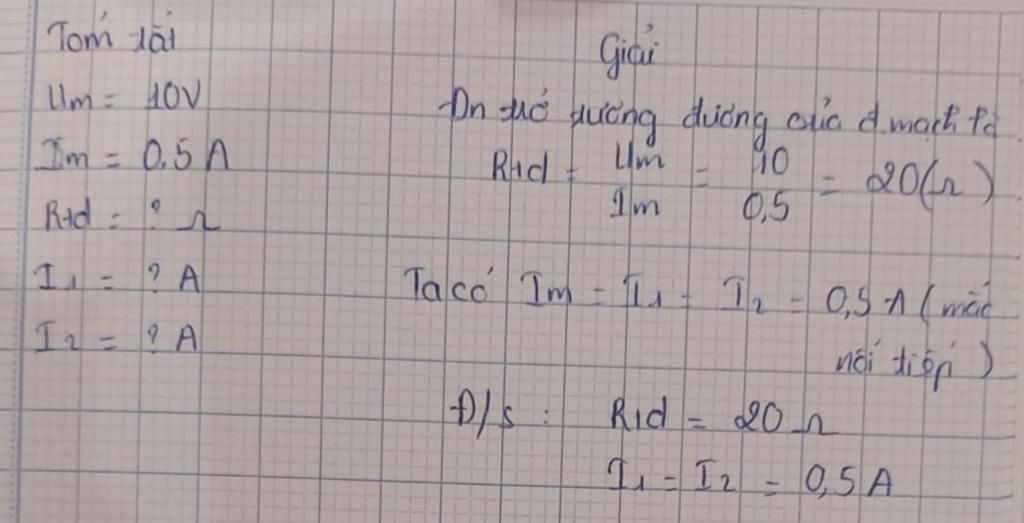 Tóm tắt
Um = 10V
Im = 0,5 A
Rtd = ? Ω
I1 = ? A
I2 = ? A
Giải
Đn trở tương đương của đ.mạch là
Rtd = Um / Im = 10 / 0,5 = 20(Ω)
Ta có Im = I1 = I2 = 0,5 A (mắc
nối tiếp)
Đ/s : Rtd = 20 Ω
I1 = I2 = 0,5 A